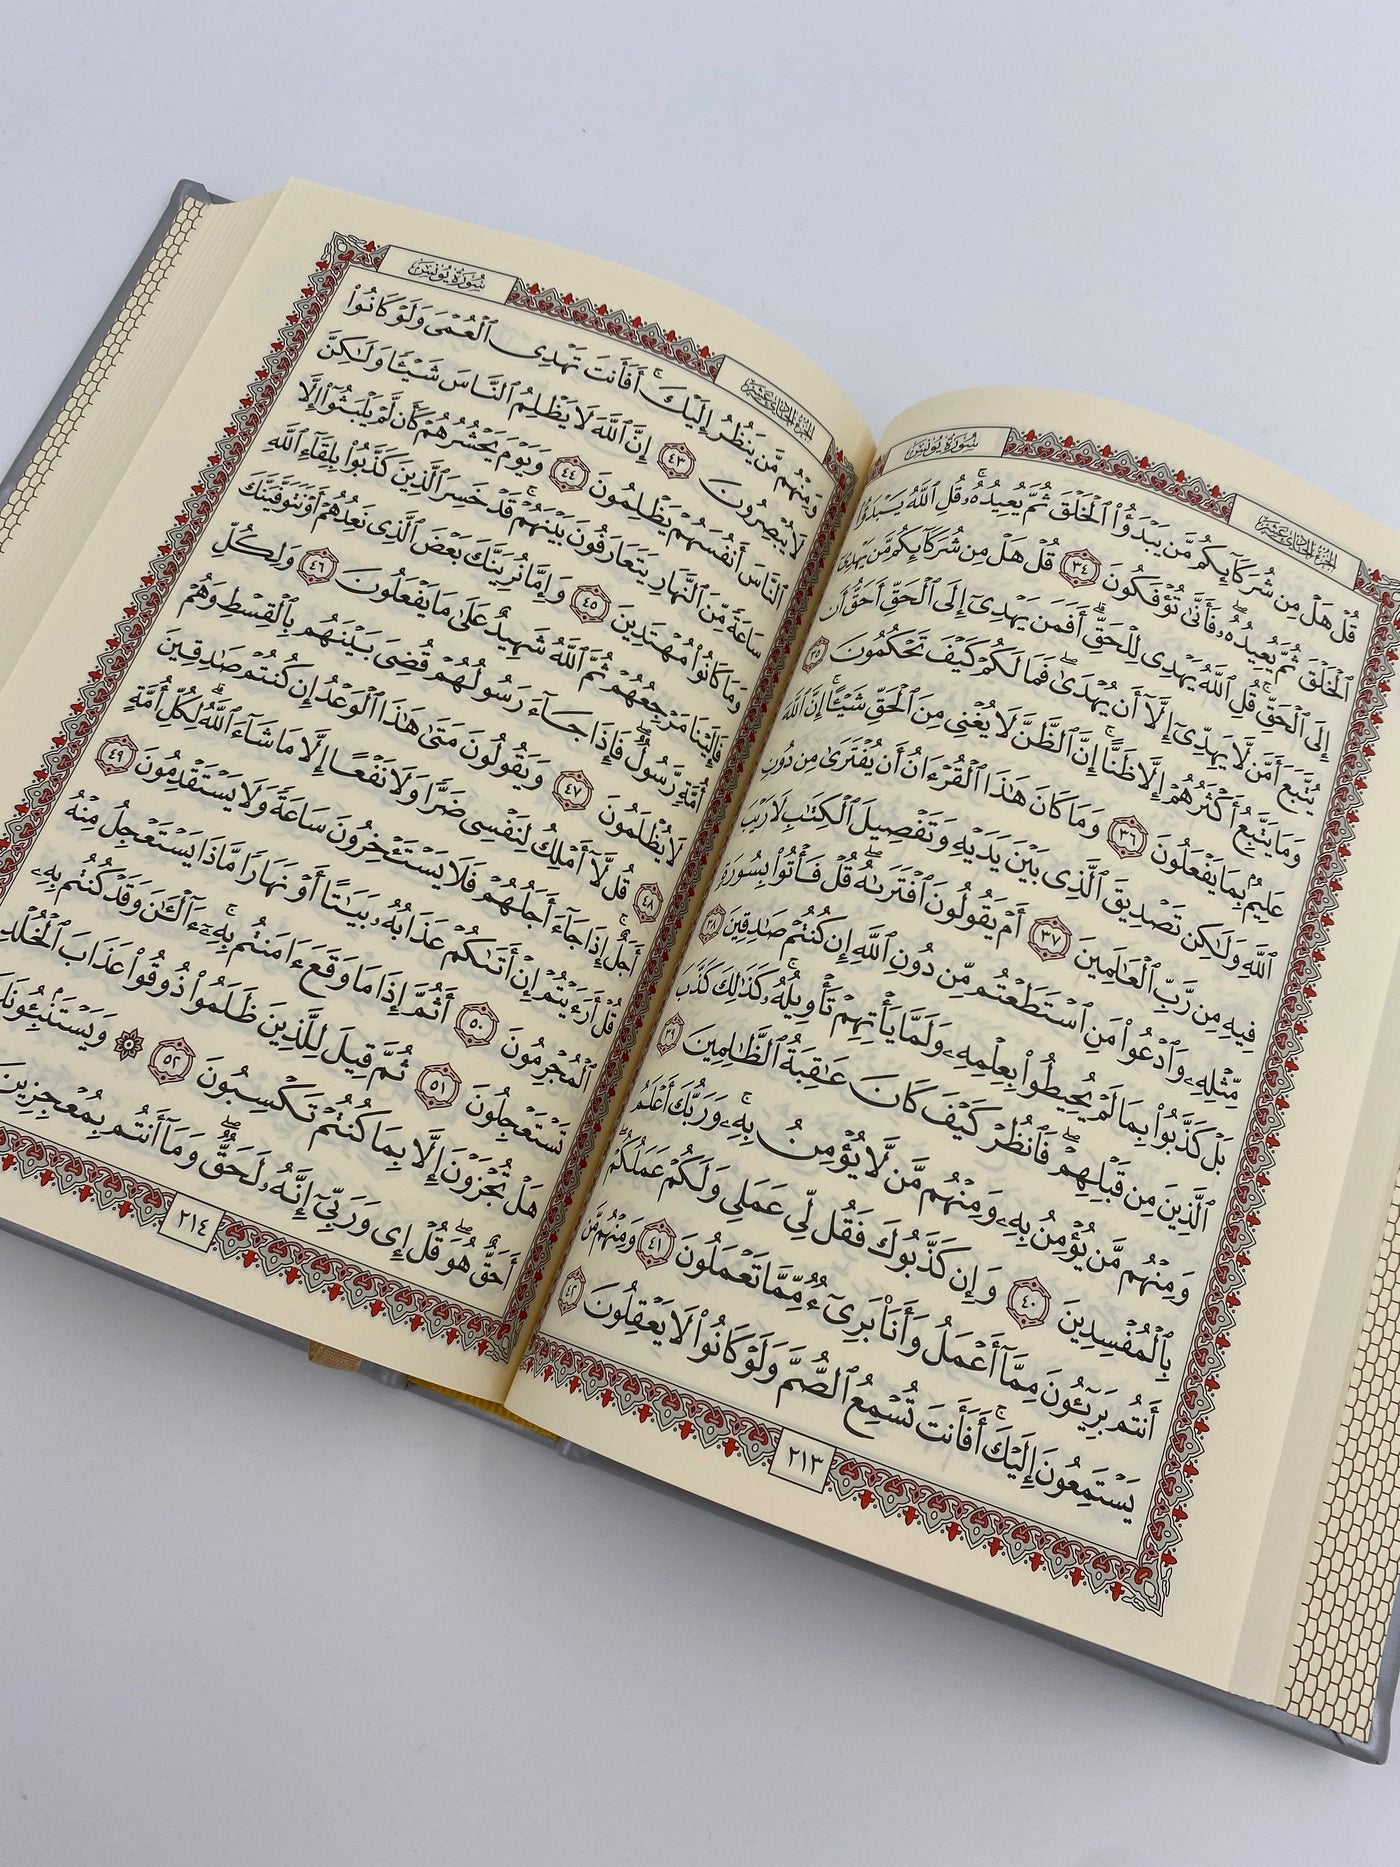 سُورَةُ يُونُسَ
الجُزْءُ الحَادِيَ عَشَرَ
قُلْ هَلْ مِن شُرَكَآئِكُم مَّن يَبْدَؤُا۟ ٱلْخَلْقَ ثُمَّ يُعِيدُهُۥ ۚ قُلِ ٱللَّهُ يَبْدَؤُا۟
ٱلْخَلْقَ ثُمَّ يُعِيدُهُۥ ۖ فَأَنَّىٰ تُؤْفَكُونَ ٣٤ قُلْ هَلْ مِن شُرَكَآئِكُم مَّن يَهْدِىٓ
إِلَى ٱلْحَقِّ ۚ قُلِ ٱللَّهُ يَهْدِى لِلْحَقِّ ۗ أَفَمَن يَهْدِىٓ إِلَى ٱلْحَقِّ أَحَقُّ أَن
يُتَّبَعَ أَمَّن لَّا يَهِدِّىٓ إِلَّآ أَن يُهْدَىٰ ۖ فَمَا لَكُمْ كَيْفَ تَحْكُمُونَ ٣٥
وَمَا يَتَّبِعُ أَكْثَرُهُمْ إِلَّا ظَنًّا ۚ إِنَّ ٱلظَّنَّ لَا يُغْنِى مِنَ ٱلْحَقِّ شَيْـًٔا ۚ إِنَّ ٱللَّهَ
عَلِيمٌۢ بِمَا يَفْعَلُونَ ٣٦ وَمَا كَانَ هَـٰذَا ٱلْقُرْءَانُ أَن يُفْتَرَىٰ مِن دُونِ
ٱللَّهِ وَلَـٰكِن تَصْدِيقَ ٱلَّذِى بَيْنَ يَدَيْهِ وَتَفْصِيلَ ٱلْكِتَـٰبِ لَا رَيْبَ
فِيهِ مِن رَّبِّ ٱلْعَـٰلَمِينَ ٣٧ أَمْ يَقُولُونَ ٱفْتَرَىٰهُ ۖ قُلْ فَأْتُوا۟ بِسُورَةٍ
مِّثْلِهِۦ وَٱدْعُوا۟ مَنِ ٱسْتَطَعْتُم مِّن دُونِ ٱللَّهِ إِن كُنتُمْ صَـٰدِقِينَ ٣٨
بَلْ كَذَّبُوا۟ بِمَا لَمْ يُحِيطُوا۟ بِعِلْمِهِۦ وَلَمَّا يَأْتِهِمْ تَأْوِيلُهُۥ ۚ كَذَٰلِكَ كَذَّبَ
ٱلَّذِينَ مِن قَبْلِهِمْ ۖ فَٱنظُرْ كَيْفَ كَانَ عَـٰقِبَةُ ٱلظَّـٰلِمِينَ ٣٩
وَمِنْهُم مَّن يُؤْمِنُ بِهِۦ وَمِنْهُم مَّن لَّا يُؤْمِنُ بِهِۦ ۚ وَرَبُّكَ أَعْلَمُ
بِٱلْمُفْسِدِينَ ٤٠ وَإِن كَذَّبُوكَ فَقُل لِّى عَمَلِى وَلَكُمْ عَمَلُكُمْ ۖ
أَنتُم بَرِيٓـُٔونَ مِمَّآ أَعْمَلُ وَأَنَا۠ بَرِىٓءٌ مِّمَّا تَعْمَلُونَ ٤١ وَمِنْهُم مَّن
يَسْتَمِعُونَ إِلَيْكَ ۚ أَفَأَنتَ تُسْمِعُ ٱلصُّمَّ وَلَوْ كَانُوا۟ لَا يَعْقِلُونَ ٤٢
٢١٣
سُورَةُ يُونُسَ
الجُزْءُ الحَادِيَ عَشَرَ
وَمِنْهُم مَّن يَنظُرُ إِلَيْكَ ۚ أَفَأَنتَ تَهْدِى ٱلْعُمْىَ وَلَوْ كَانُوا۟
لَا يُبْصِرُونَ ٤٣ إِنَّ ٱللَّهَ لَا يَظْلِمُ ٱلنَّاسَ شَيْـًٔا وَلَـٰكِنَّ
ٱلنَّاسَ أَنفُسَهُمْ يَظْلِمُونَ ٤٤ وَيَوْمَ يَحْشُرُهُمْ كَأَن لَّمْ يَلْبَثُوٓا۟ إِلَّا
سَاعَةً مِّنَ ٱلنَّهَارِ يَتَعَارَفُونَ بَيْنَهُمْ ۚ قَدْ خَسِرَ ٱلَّذِينَ كَذَّبُوا۟ بِلِقَآءِ ٱللَّهِ
وَمَا كَانُوا۟ مُهْتَدِينَ ٤٥ وَإِمَّا نُرِيَنَّكَ بَعْضَ ٱلَّذِى نَعِدُهُمْ أَوْ نَتَوَفَّيَنَّكَ
فَإِلَيْنَا مَرْجِعُهُمْ ثُمَّ ٱللَّهُ شَهِيدٌ عَلَىٰ مَا يَفْعَلُونَ ٤٦ وَلِكُلِّ
أُمَّةٍ رَّسُولٌ ۖ فَإِذَا جَآءَ رَسُولُهُمْ قُضِىَ بَيْنَهُم بِٱلْقِسْطِ وَهُمْ
لَا يُظْلَمُونَ ٤٧ وَيَقُولُونَ مَتَىٰ هَـٰذَا ٱلْوَعْدُ إِن كُنتُمْ صَـٰدِقِينَ
٤٨ قُل لَّآ أَمْلِكُ لِنَفْسِى ضَرًّا وَلَا نَفْعًا إِلَّا مَا شَآءَ ٱللَّهُ ۗ لِكُلِّ أُمَّةٍ
أَجَلٌ ۚ إِذَا جَآءَ أَجَلُهُمْ فَلَا يَسْتَـْٔخِرُونَ سَاعَةً وَلَا يَسْتَقْدِمُونَ ٤٩
قُلْ أَرَءَيْتُمْ إِنْ أَتَىٰكُمْ عَذَابُهُۥ بَيَـٰتًا أَوْ نَهَارًا مَّاذَا يَسْتَعْجِلُ مِنْهُ
ٱلْمُجْرِمُونَ ٥٠ أَثُمَّ إِذَا مَا وَقَعَ ءَامَنتُم بِهِۦٓ ۚ ءَآلْـَٔـٰنَ وَقَدْ كُنتُم بِهِۦ
تَسْتَعْجِلُونَ ٥١ ثُمَّ قِيلَ لِلَّذِينَ ظَلَمُوا۟ ذُوقُوا۟ عَذَابَ ٱلْخُلْدِ
هَلْ تُجْزَوْنَ إِلَّا بِمَا كُنتُمْ تَكْسِبُونَ ٥٢ ۞ وَيَسْتَنۢبِـُٔونَكَ
أَحَقٌّ هُوَ ۖ قُلْ إِى وَرَبِّىٓ إِنَّهُۥ لَحَقٌّ ۖ وَمَآ أَنتُم بِمُعْجِزِينَ
٢١٤